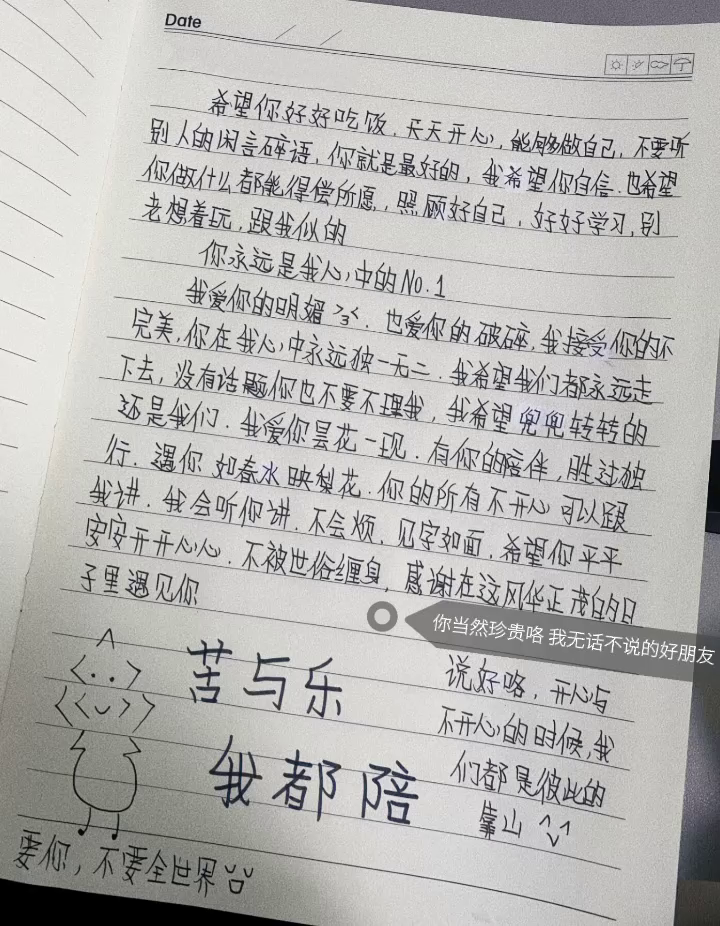 Date
希望你好好吃饭，天天开心，能够做自己，不要听
别人的闲言碎语，你就是最好的，我希望你自信，也希望
你做什么都能得偿所愿，照顾好自己，好好学习，别
老想着玩，跟我似的
你永远是我心中的No.1
我爱你的明媚，也爱你的破碎，我接受你的不
完美，你在我心中永远独一无二．我希望我们都永远走
下去，没有话题你也不要不理我，我希望兜兜转转的
还是我们．我爱你昙花一现．有你的陪伴，胜过独
行．遇你如春水映梨花．你的所有不开心可以跟
我讲．我会听你讲．不会烦．见字如面，希望你平平
安安开开心心．不被世俗缠身，感谢在这风华正茂的日
子里遇见你
你当然珍贵咯 我无话不说的好朋友
苦与乐
我都陪
说好咯，开心与
不开心的时候，我
们都是彼此的
靠山 ^v^
要你，不要全世界